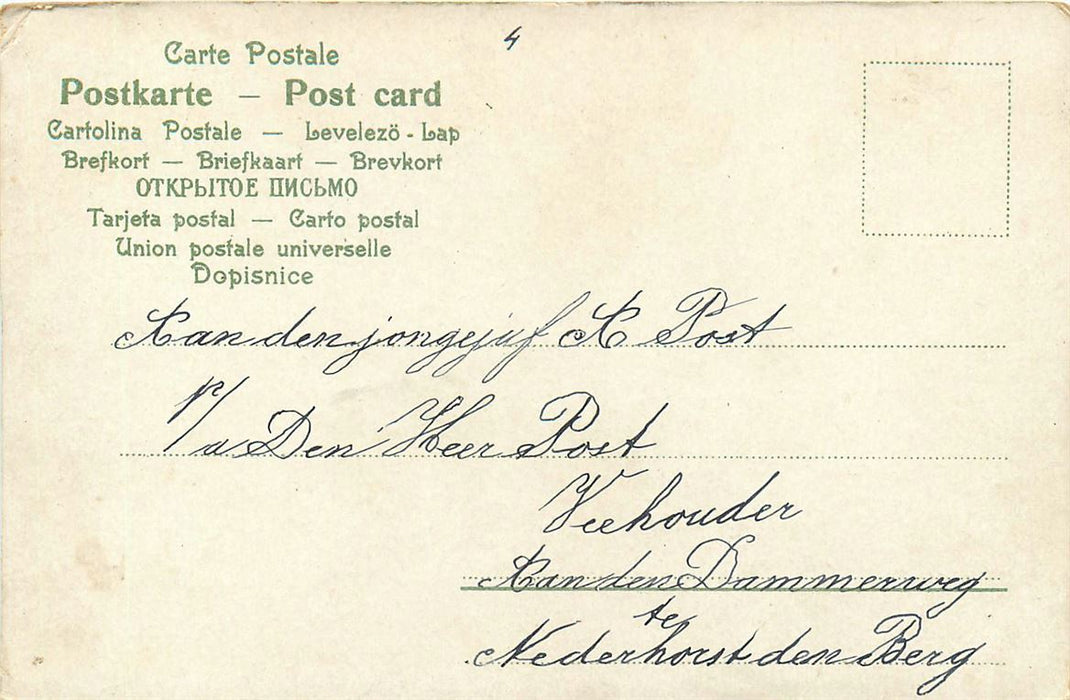 4
Carte Postale
Postkarte — Post card
Cartolina Postale — Levelezö - Lap
Brefkort — Briefkaart — Brevkort
ОТКРЫТОЕ ПИСЬМО
Tarjeta postal — Carto postal
Union postale universelle
Dopisnice
Aan den jongejuf A Post
p/a Den Heer Post
Veehouder
Aan den Dammerweg
te
Nederhorst den Berg